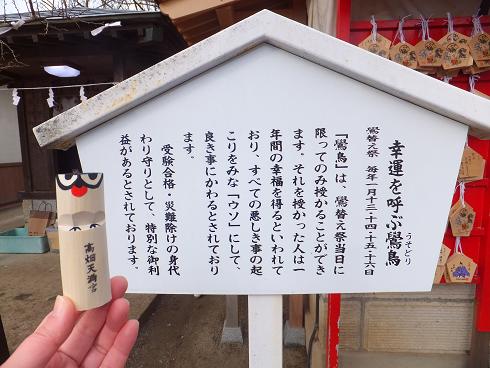 幸運を呼ぶ鷽鳥
うそどり
鷽替え祭 毎年一月十三・十四・十五・十六日
「鷽鳥」は、鷽替え祭当日に
限ってのみ授かることができ
ます。それを授かった人は一
年間の幸福を得るといわれて
おり、すべての悪しき事の起
こりをみな「ウソ」にして、
良き事にかわるとされており
ます。
受験合格・災難除けの身代
わり守りとして、特別な御利
益があるとされております。
高畑天満宮